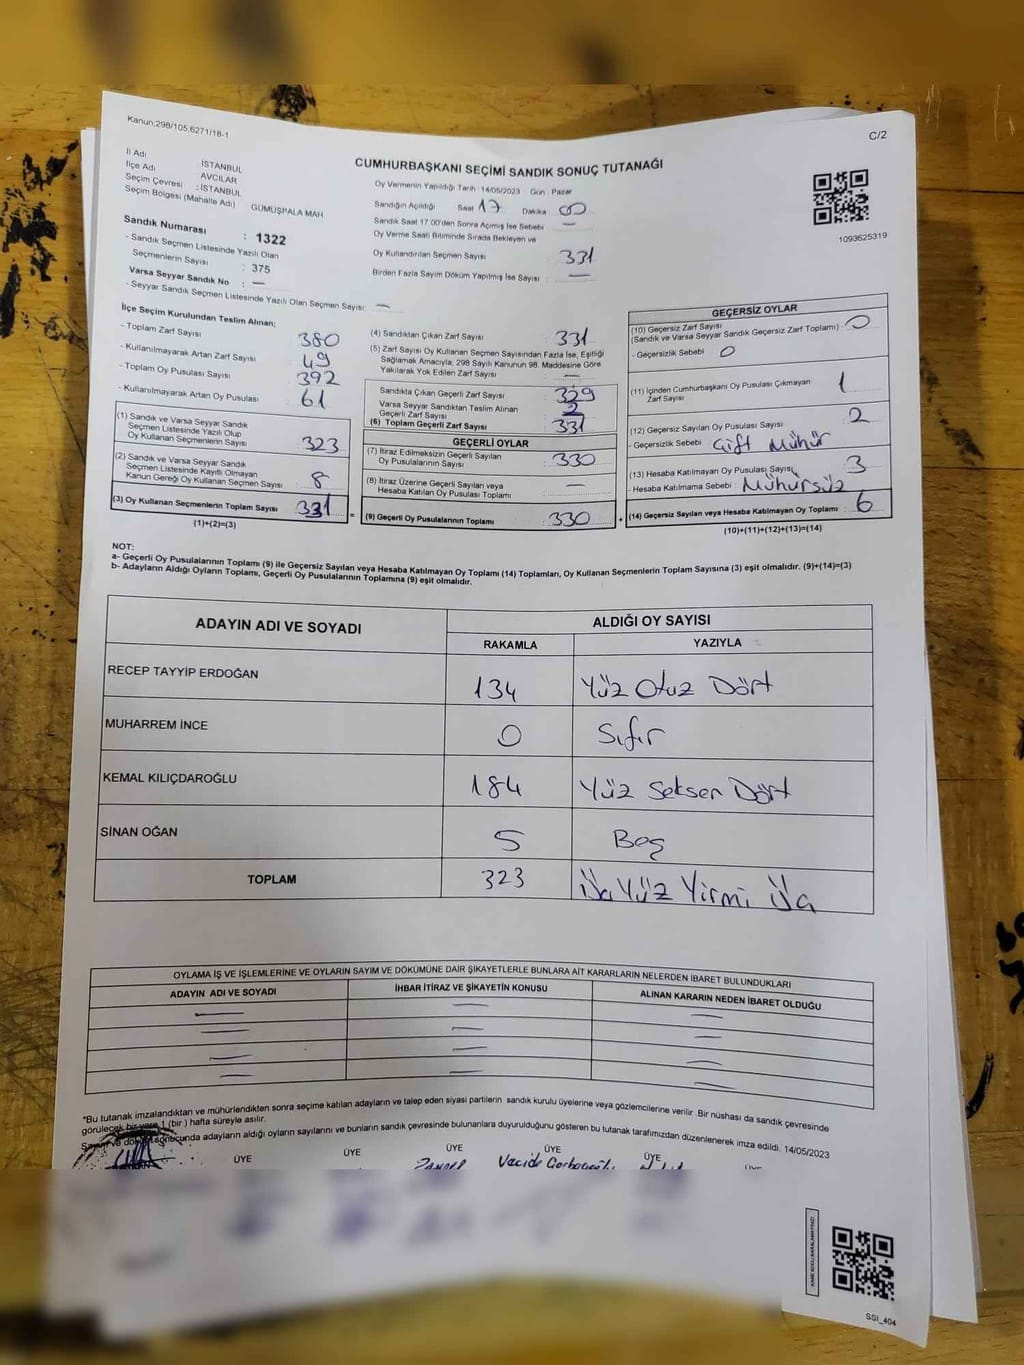 Kanun;298/105,6271/18-1
C/2
CUMHURBAŞKANI SEÇİMİ SANDIK SONUÇ TUTANAĞI
İl Adı İSTANBUL
İlçe Adı AVCILAR
Seçim Çevresi : İSTANBUL
Seçim Bölgesi (Mahalle Adı) GÜMÜŞPALA MAH
Sandık Numarası : 1322
- Sandık Seçmen Listesinde Yazılı Olan
Seçmenlerin Sayısı : 375
Varsa Seyyar Sandık No : —
- Seyyar Sandık Seçmen Listesinde Yazılı Olan Seçmen Sayısı: —
Oy Vermenin Yapıldığı Tarih :14/05/2023 Gün : Pazar
Sandığın Açıldığı Saat 17 Dakika 00
Sandık Saat 17:00'den Sonra Açılmış İse Sebebi : —
Oy Verme Saati Bitiminde Sırada Bekleyen ve
Oy Kullandırılan Seçmen Sayısı : 331
Birden Fazla Sayım Döküm Yapılmış İse Sayısı : —
1093625319
İlçe Seçim Kurulundan Teslim Alınan;
- Toplam Zarf Sayısı 380
- Kullanılmayarak Artan Zarf Sayısı : 49
- Toplam Oy Pusulası Sayısı : 392
- Kullanılmayarak Artan Oy Pusulası : 61
(1) Sandık ve Varsa Seyyar Sandık
Seçmen Listesinde Yazılı Olup
Oy Kullanan Seçmenlerin Sayısı : 323
(2) Sandık ve Varsa Seyyar Sandık
Seçmen Listesinde Kayıtlı Olmayan
Kanun Gereği Oy Kullanan Seçmen Sayısı : 8
(3) Oy Kullanan Seçmenlerin Toplam Sayısı : 331
(1)+(2)=(3)
(4) Sandıktan Çıkan Zarf Sayısı : 331
(5) Zarf Sayısı Oy Kullanan Seçmen Sayısından Fazla İse, Eşitliği
Sağlamak Amacıyla, 298 Sayılı Kanunun 98. Maddesine Göre
Yakılarak Yok Edilen Zarf Sayısı : —
Sandıkta Çıkan Geçerli Zarf Sayısı : 329
Varsa Seyyar Sandıktan Teslim Alınan
Geçerli Zarf Sayısı : 2
(6) Toplam Geçerli Zarf Sayısı : 331
GEÇERLİ OYLAR
(7) İtiraz Edilmeksizin Geçerli Sayılan
Oy Pusulalarının Sayısı : 330
(8) İtiraz Üzerine Geçerli Sayılan veya
Hesaba Katılan Oy Pusulası Toplamı : —
= (9) Geçerli Oy Pusulalarının Toplamı : 330 +
GEÇERSİZ OYLAR
(10) Geçersiz Zarf Sayısı
(Sandık ve Varsa Seyyar Sandık Geçersiz Zarf Toplamı) : 0
- Geçersizlik Sebebi : 0
(11) İçinden Cumhurbaşkanı Oy Pusulası Çıkmayan
Zarf Sayısı : 1
(12) Geçersiz Sayılan Oy Pusulası Sayısı : 2
- Geçersizlik Sebebi : Çift Mühür
(13) Hesaba Katılmayan Oy Pusulası Sayısı : 3
- Hesaba Katılmama Sebebi : Mühürsüz
(14) Geçersiz Sayılan veya Hesaba Katılmayan Oy Toplamı : 6
(10)+(11)+(12)+(13)=(14)
NOT:
a- Geçerli Oy Pusulalarının Toplamı (9) ile Geçersiz Sayılan veya Hesaba Katılmayan Oy Toplamı (14) Toplamları, Oy Kullanan Seçmenlerin Toplam Sayısına (3) eşit olmalıdır. (9)+(14)=(3)
b- Adayların Aldığı Oyların Toplamı, Geçerli Oy Pusulalarının Toplamına (9) eşit olmalıdır.
ADAYIN ADI VE SOYADI
ALDIĞI OY SAYISI
RAKAMLA YAZIYLA
RECEP TAYYİP ERDOĞAN 134 Yüz Otuz Dört
MUHARREM İNCE 0 Sıfır
KEMAL KILIÇDAROĞLU 184 Yüz Seksen Dört
SİNAN OĞAN 5 Beş
TOPLAM 323 Üç Yüz Yirmi Üç
OYLAMA İŞ VE İŞLEMLERİNE VE OYLARIN SAYIM VE DÖKÜMÜNE DAİR ŞİKAYETLERLE BUNLARA AİT KARARLARIN NELERDEN İBARET BULUNDUKLARI
ADAYIN ADI VE SOYADI İHBAR İTİRAZ VE ŞİKAYETİN KONUSU ALINAN KARARIN NEDEN İBARET OLDUĞU
— — —
— — —
— — —
— — —
*Bu tutanak imzalandıktan ve mühürlendikten sonra seçime katılan adayların ve talep eden siyasi partilerin sandık kurulu üyelerine veya gözlemcilerine verilir .Bir nüshası da sandık çevresinde
görülecek bir yere 1 (bir ) hafta süreyle asılır.
Sayım ve döküm sonucunda adayların aldığı oyların sayılarını ve bunların sandık çevresinde bulunanlara duyurulduğunu gösteren bu tutanak tarafımızdan düzenlenerek imza edildi. 14/05/2023
ÜYE ÜYE ÜYE ÜYE ÜYE
SSİ_404